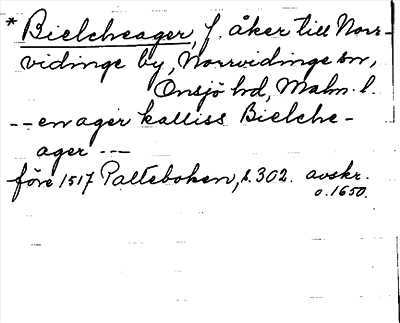 * Bielcheager, f. åker till Norr-
vidinge by, Norrvidinge sn,
Onsjö hd, Malm. l.
--en ager kalliss Bielche-
ager ---
före 1517 Palteboken, s. 302. avskr.
o. 1650.